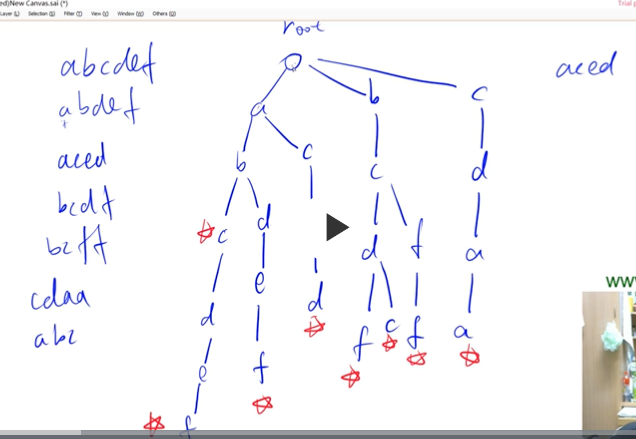 ed)New Canvas.sai (*)
Trial p
Layer (L) Selection (S) Filter (T) View (V) Window (W) Others (O)
root
abcdef
abdef
aced
bcdf
bcff
cdaa
abc
aced
a
b
c
b
c
c
d
c
d
d
f
a
e
d
d
f
c
f
a
e
f
f
WW